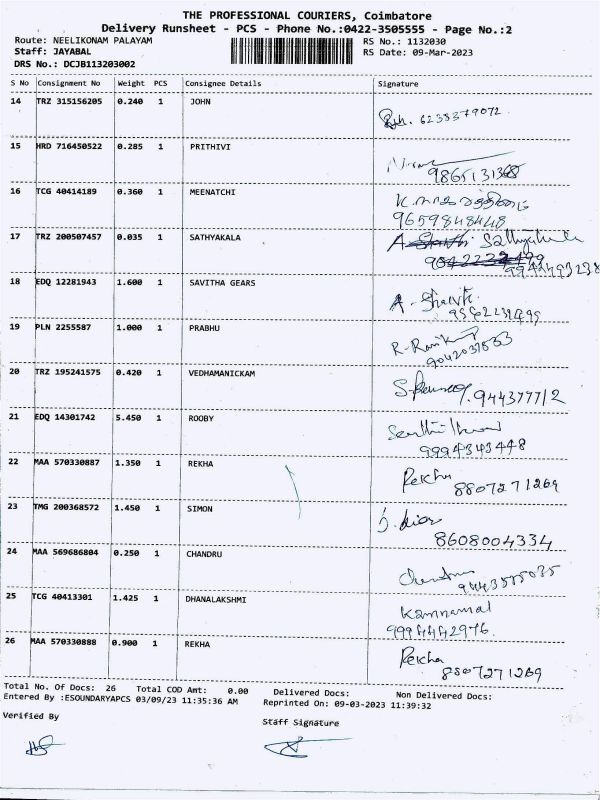 THE PROFESSIONAL COURIERS, Coimbatore
Delivery Runsheet - PCS - Phone No.:0422-3505555 - Page No.:2
Route: NEELIKONAM PALAYAM RS No.: 1132030
Staff: JAYABAL RS Date: 09-Mar-2023
DRS No.: DCJB113203002
S No Consignment No Weight PCS Consignee Details Signature
14 TRZ 315156205 0.240 1 JOHN
6238379072
15 HRD 716450522 0.285 1 PRITHIVI
16 TCG 40414189 0.360 1 MEENATCHI
9659848448
17 TRZ 200507457 0.035 1 SATHYAKALA
A Sathyakala
18 EDQ 12281943 1.600 1 SAVITHA GEARS
A-
19 PLN 2255587 1.000 1 PRABHU
20 TRZ 195241575 0.420 1 VEDHAMANICKAM
21 EDQ 14301742 5.450 1 ROOBY
9994343448
22 MAA 570330887 1.350 1 REKHA
Rekha
8807271269
23 TMG 200368572 1.450 1 SIMON
8608004334
24 MAA 569686804 0.250 1 CHANDRU
25 TCG 40413301 1.425 1 DHANALAKSHMI
Kannamal
9994442976.
26 MAA 570330888 0.900 1 REKHA
Rekha
8807271269
Total No. Of Docs: 26 Total COD Amt: 0.00 Delivered Docs: Non Delivered Docs:
Entered By :ESOUNDARYAPCS 03/09/23 11:35:36 AM Reprinted On: 09-03-2023 11:39:32
Verified By Staff Signature